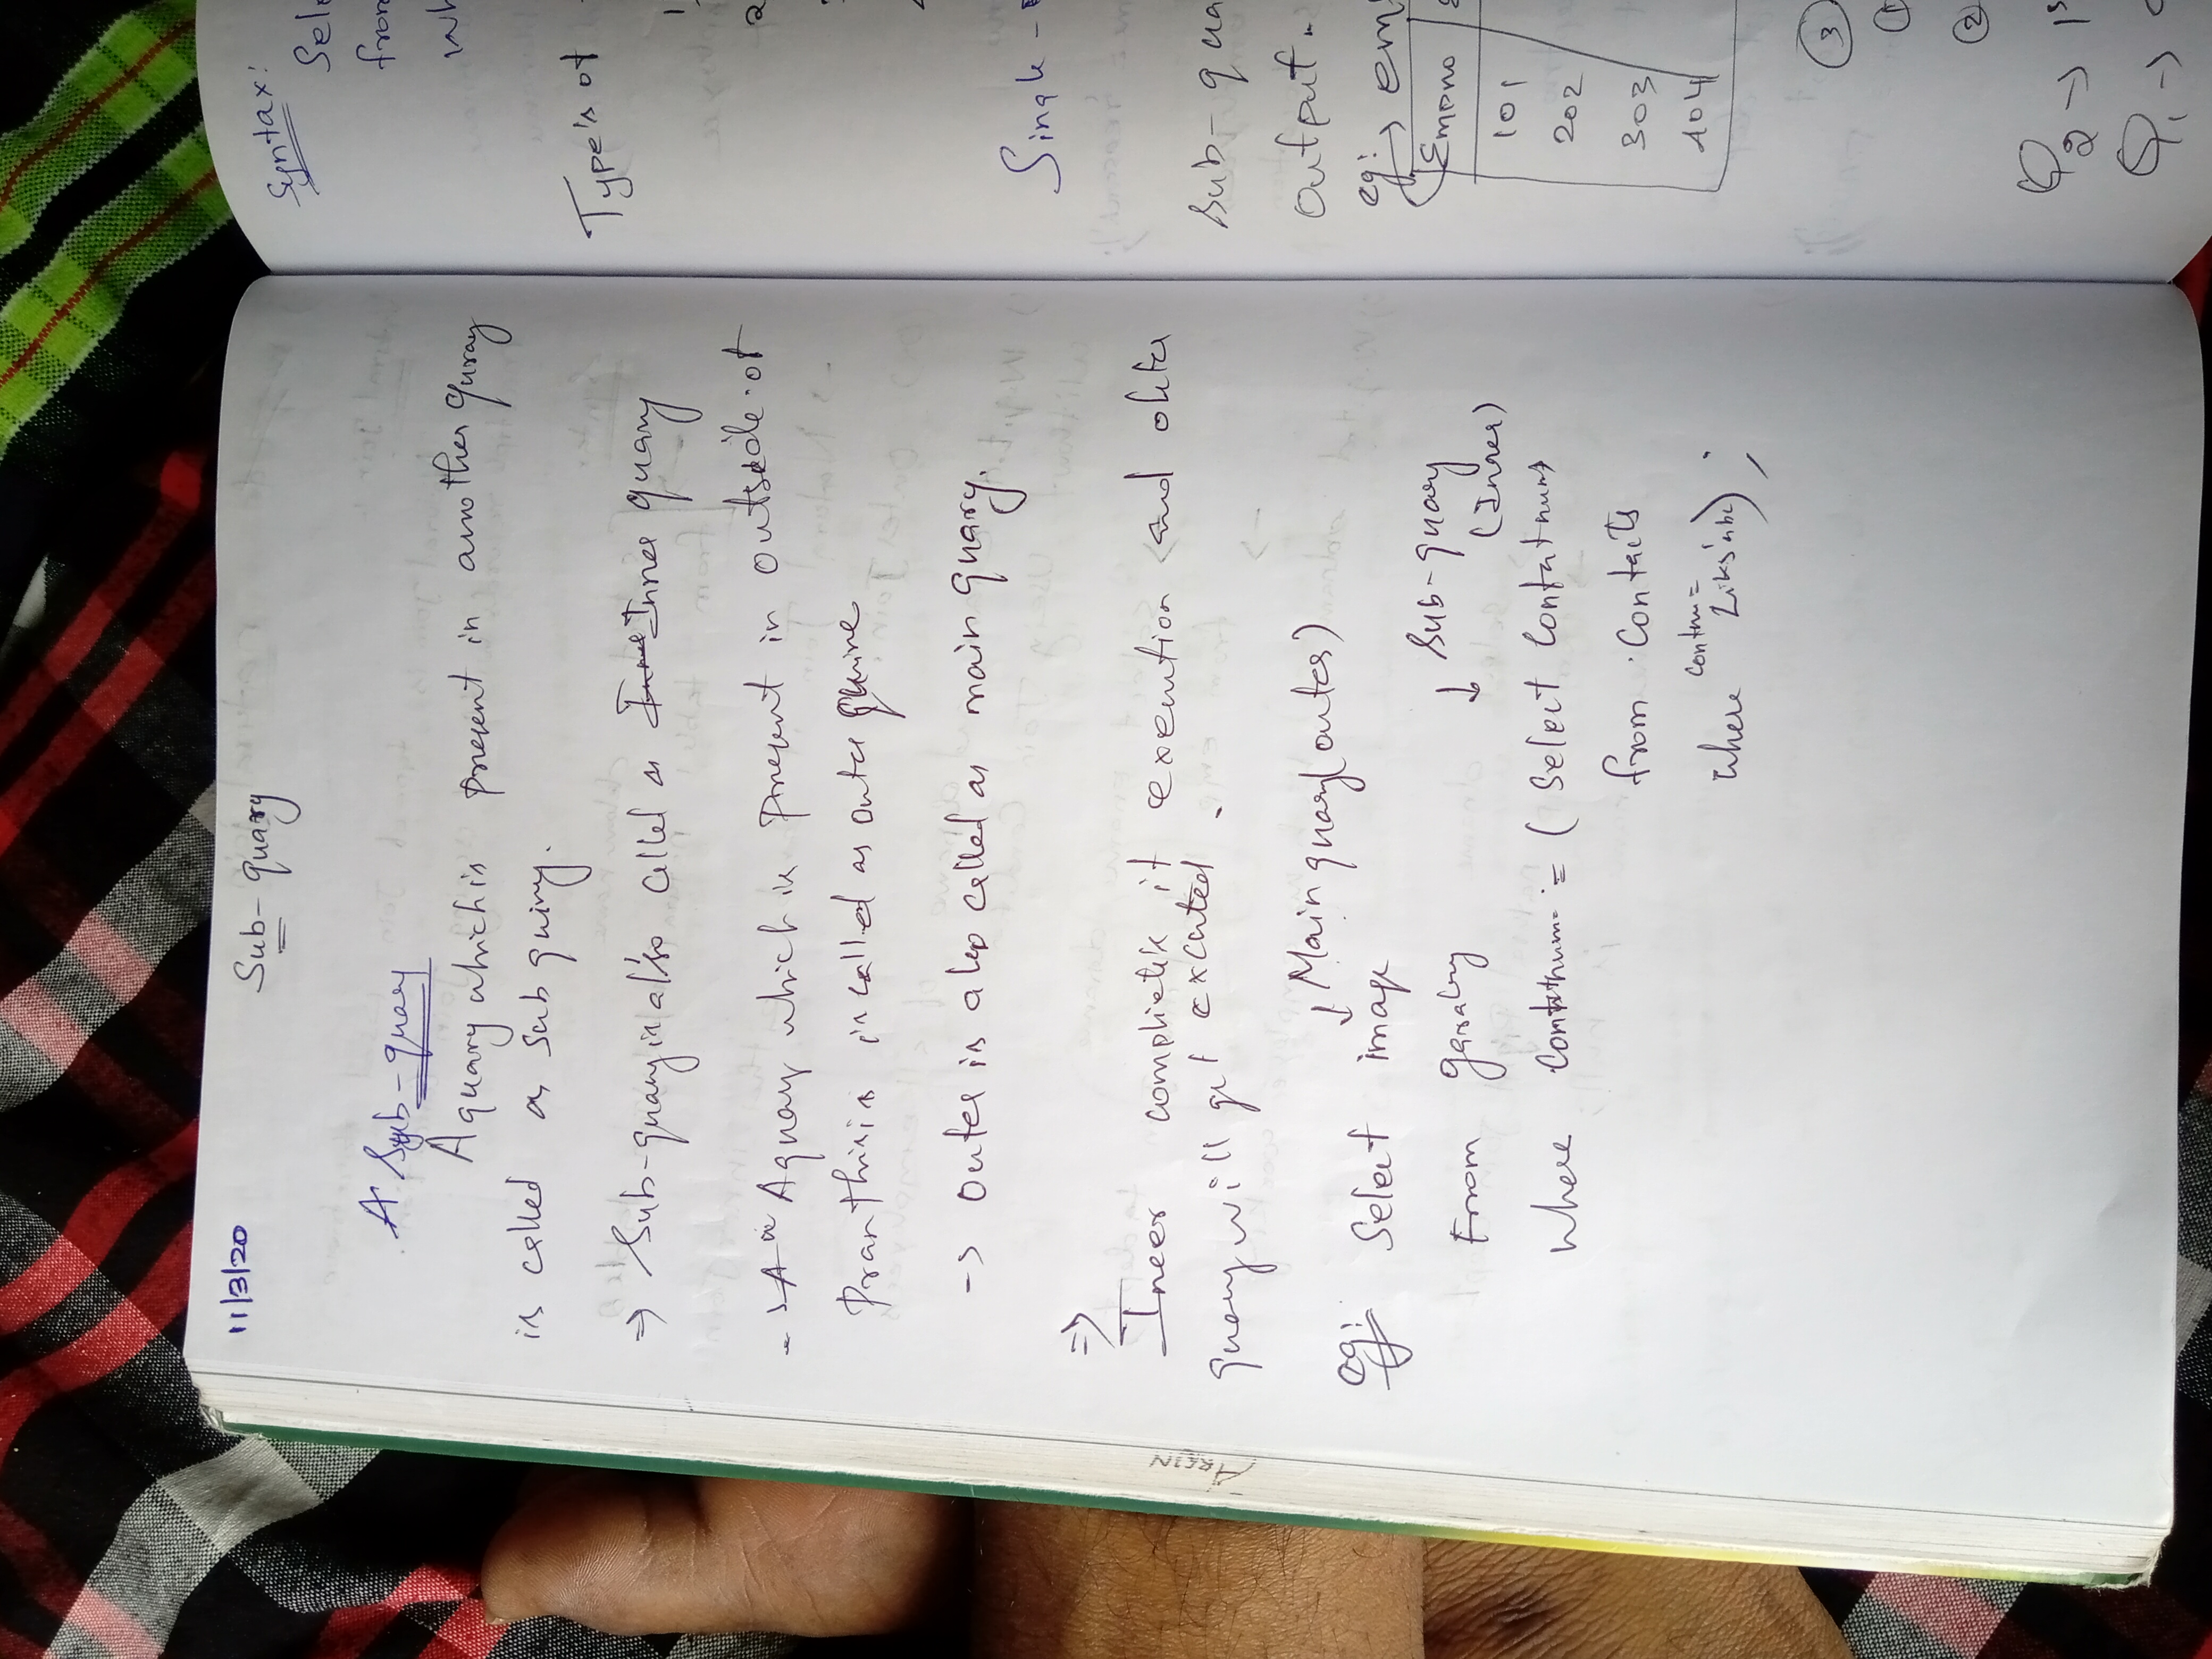 11/3/20
Sub-quary
A Sub-quary
A quary which is present in another quray
is called as Sub quiry.
=> Sub-quary is also called as Inner quary
-> A quary which is present in outside of
Pranthisis is called as outer
-> outer is also called as main quary.
=> Ineer complietk it execution and outer
quary will get excuted.
↓ Main quary (outer)
eg: Select image
From garalry
↓ Sub-quary
(Inner)
where contnum = ( Select Contatnum
from Contacts
where contnum=
);
Syntax:
Sele
from
wh
Type's of
Single -
Sub-qua
output.
eg: -> emp
Empno
101
202
303
404
③
①
②
Q2 -> 1s
Q1 ->
ARSIN